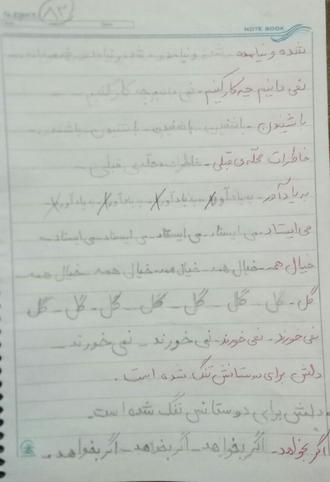 ۸۳
NOTE BOOK
نشده و نیامده - شده و نیامده - شده و نیامده
نمی دانیم چه کار کنیم - نمی دانیم چه کار کنیم -
خاطرات محله ی قبلی - خاطرات محله ی قبلی -
به یاد آور - به یاد آور - به یاد آور - به یاد آور
می ایستاد - می ایستاد - می ایستاد - می ایستاد - می ایستاد -
خیال همه - خیال همه - خیال همه - خیال همه - خیال همه
گل - گل - گل - گل - گل - گل - گل - گل
نمی خورند - نمی خورند - نمی خورند - نمی خورند -
دلش برای دوستانش تنگ شده است .
دلش برای دوستانش تنگ شده است .
اگر بخواهد - اگر بخواهد - اگر بخواهد - اگر بخواهد .